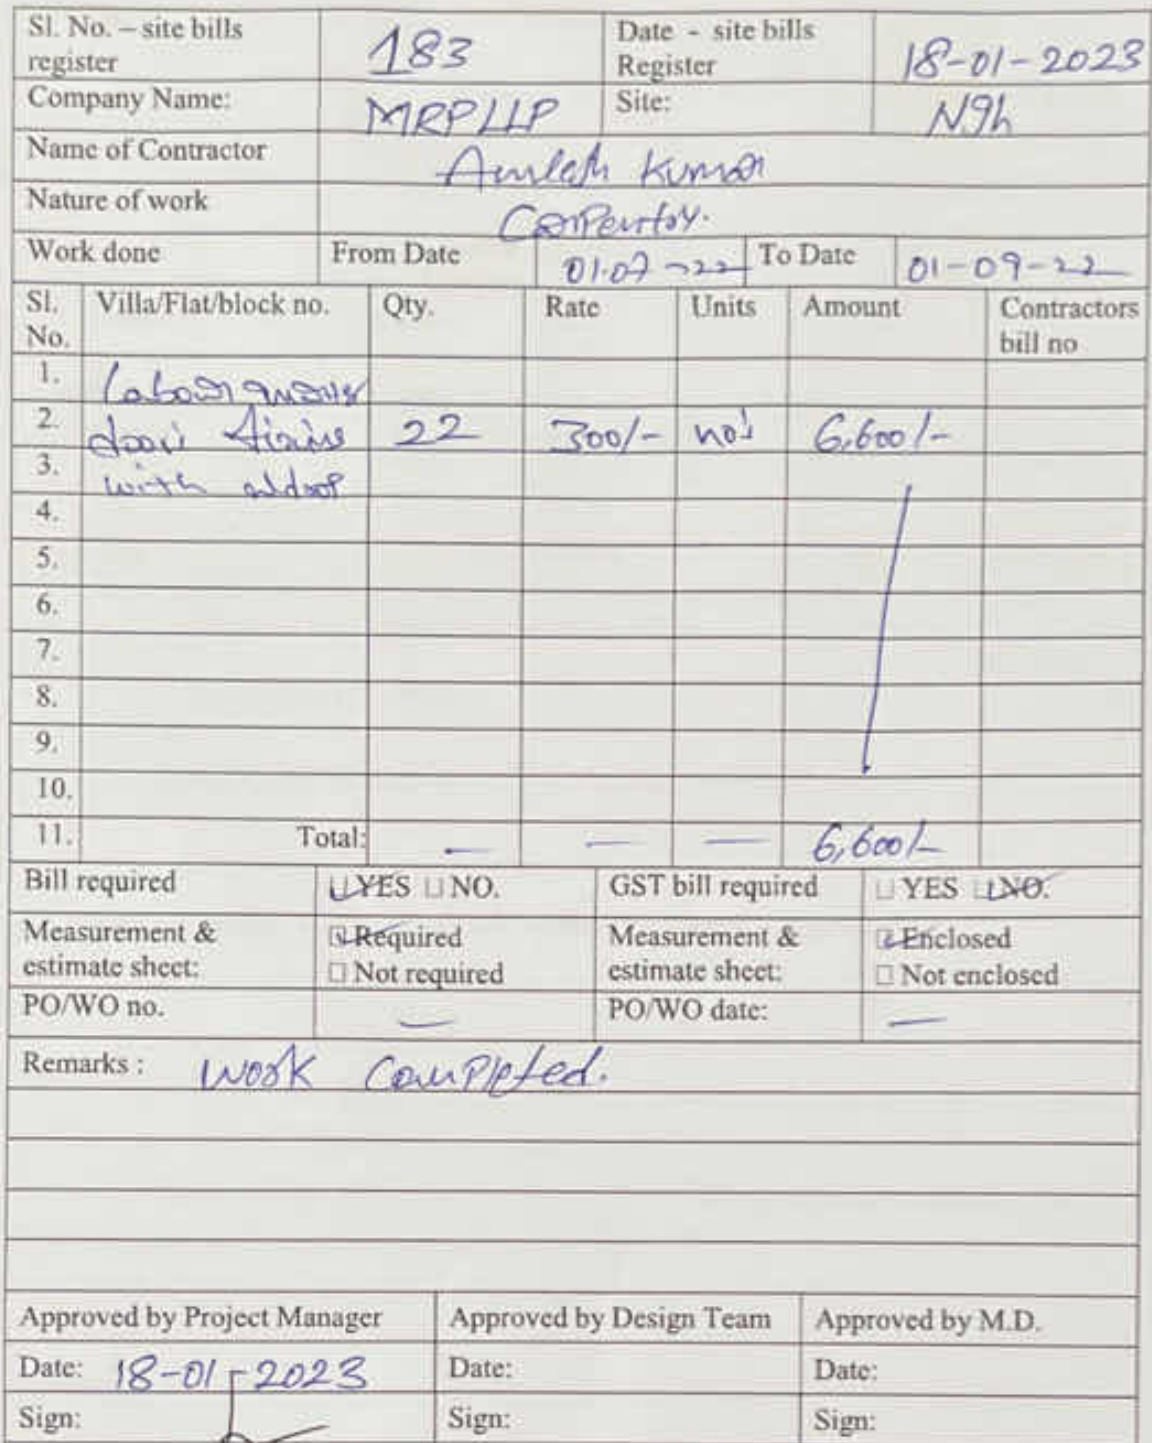 Sl. No. – site bills register 183 Date - site bills Register 18-01-2023
Company Name: MRPLLP Site: NGh
Name of Contractor Kumar
Nature of work
Work done From Date 01.07-22 To Date 01-09-22
Sl. No. Villa/Flat/block no. Qty. Rate Units Amount Contractors bill no
1. Labour
2. door 22 300/- no's 6,600/-
3. with aldrop
4.
5.
6.
7.
8.
9.
10.
11. Total: — — — 6,600/-
Bill required ☑ YES ☐ NO. GST bill required ☐ YES ☑ NO.
Measurement & estimate sheet: ☑ Required ☐ Not required Measurement & estimate sheet: ☑ Enclosed ☐ Not enclosed
PO/WO no. — PO/WO date: —
Remarks : Work Completed.
Approved by Project Manager Approved by Design Team Approved by M.D.
Date: 18-01-2023 Date: Date:
Sign: Sign: Sign: